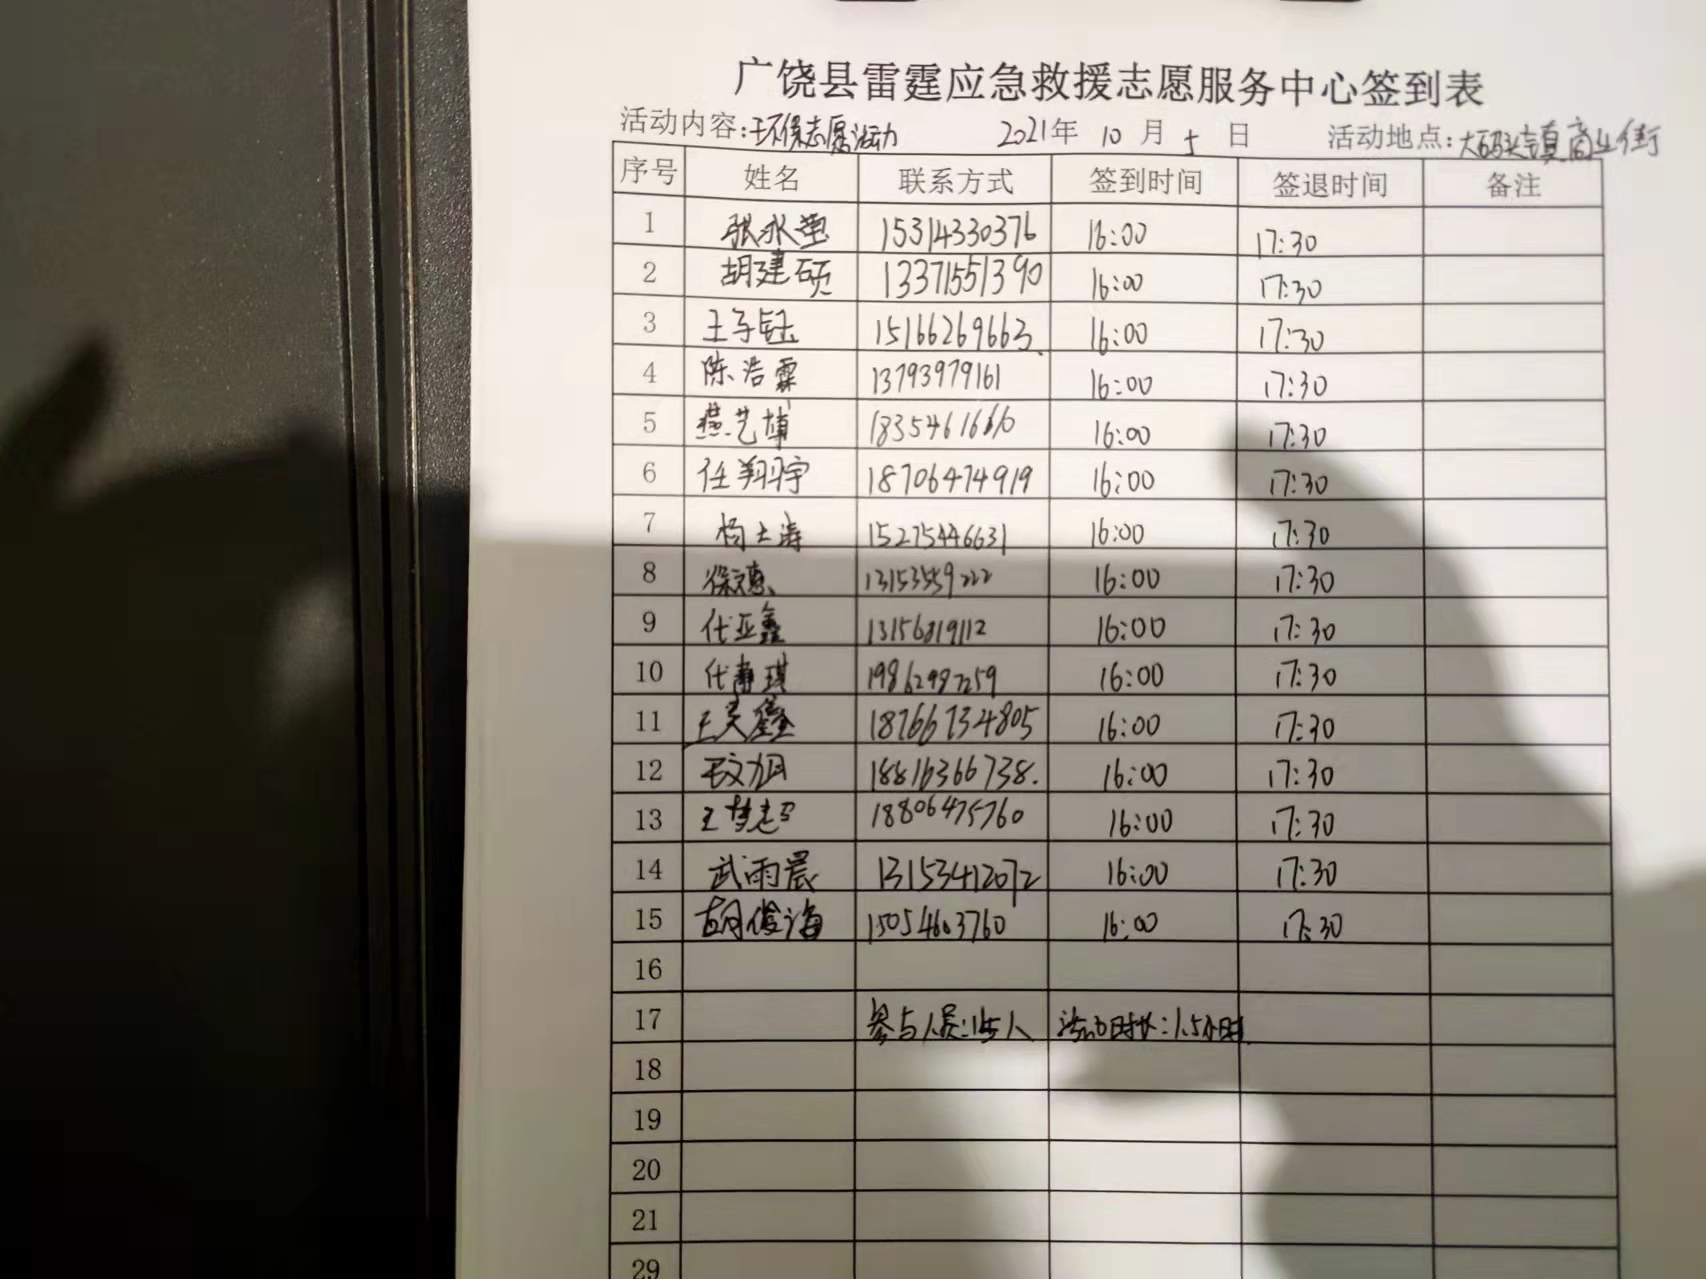 广饶县雷霆应急救援志愿服务中心签到表
活动内容:环保志愿活动 2021年 10 月 5 日 活动地点:大码头镇商业街
序号 姓名 联系方式 签到时间 签退时间 备注
1 张永 15314330376 16:00 17:30
2 胡建硕 13371551390 16:00 17:30
3 王子钰 15166269663 16:00 17:30
4 陈浩霖 13793979161 16:00 17:30
5 燕艺博 16:00 17:30
6 任翔宇 18706474919 16:00 17:30
7 杨士涛 15275446631 16:00 17:30
8 16:00 17:30
9 代亚鑫 13156819112 16:00 17:30
10 代静琪 19862987259 16:00 17:30
11 王昊鑫 18766734805 16:00 17:30
12 王文旭 18816366738. 16:00 17:30
13 王梦超 18806475760 16:00 17:30
14 武雨晨 13153412072 16:00 17:30
15 胡俊海 15054603760 16:00 17:30
16
17 参与人员:15人 活动时长:1.5小时
18
19
20
21
29